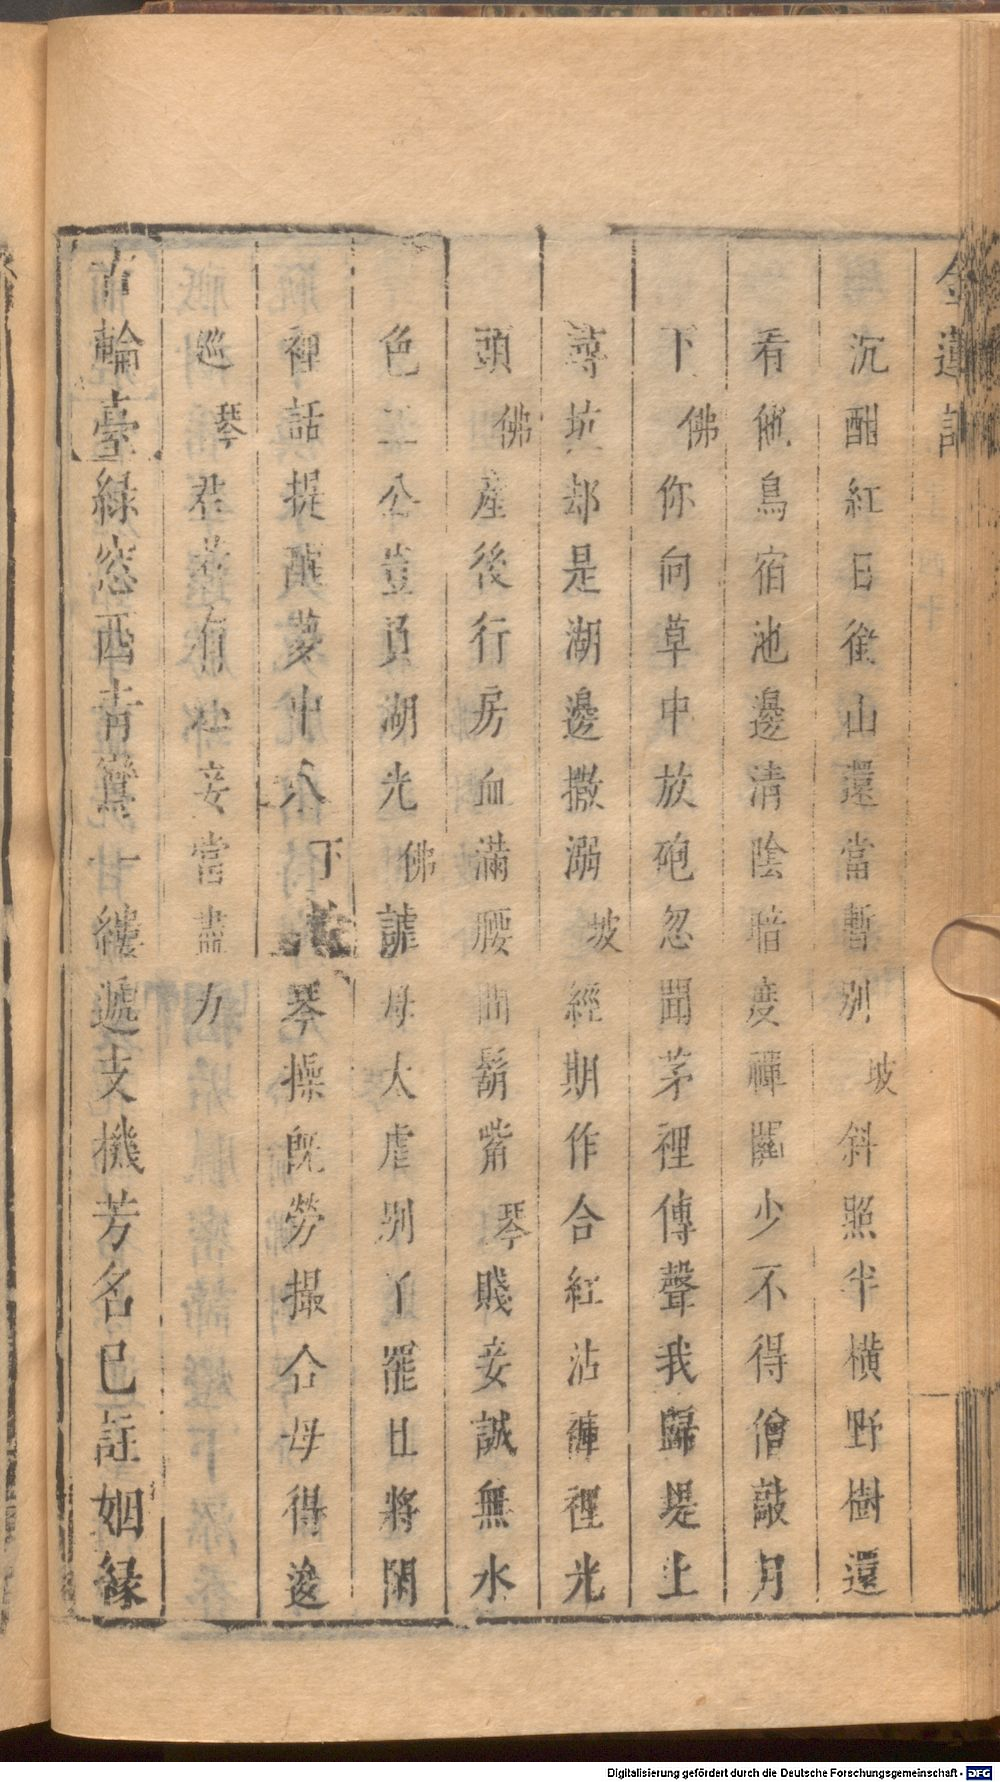 金蓮記
沉酣紅日銜山還當暫別坡斜照半橫野樹還
看他鳥宿池邊清陰暗度禪關少不得僧敲月
下佛你向草中放砲忽聞茅裡傳聲我歸堤上
尋坑却是湖邊撒溺坡經期作合紅沾褲裡光
頭佛產後行房血滿腰間鬍觜琴賤妾誠無水
色公豈負湖光佛謔母太虐別了罷且將閑
裡話提夢中人下琴操既勞撮合母得逡
巡琴君有妾當盡力
輪臺綠窓西青鸞一縷遞支機芳名已註姻緣
Digitalisierung gefördert durch die Deutsche Forschungsgemeinschaft - DFG